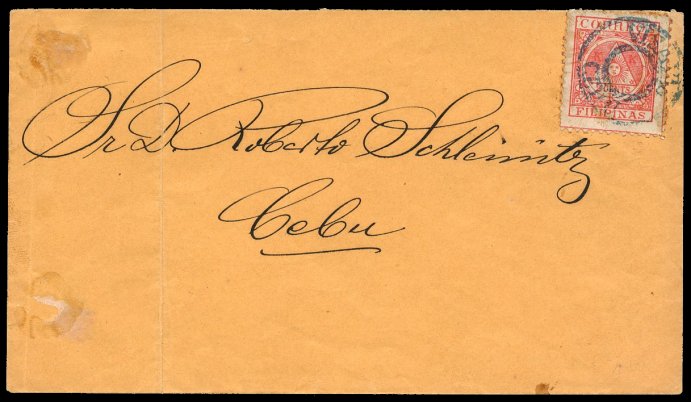 CORREOS
FILIPINAS
Sr. D. Roberto Schleinitz
Cebu